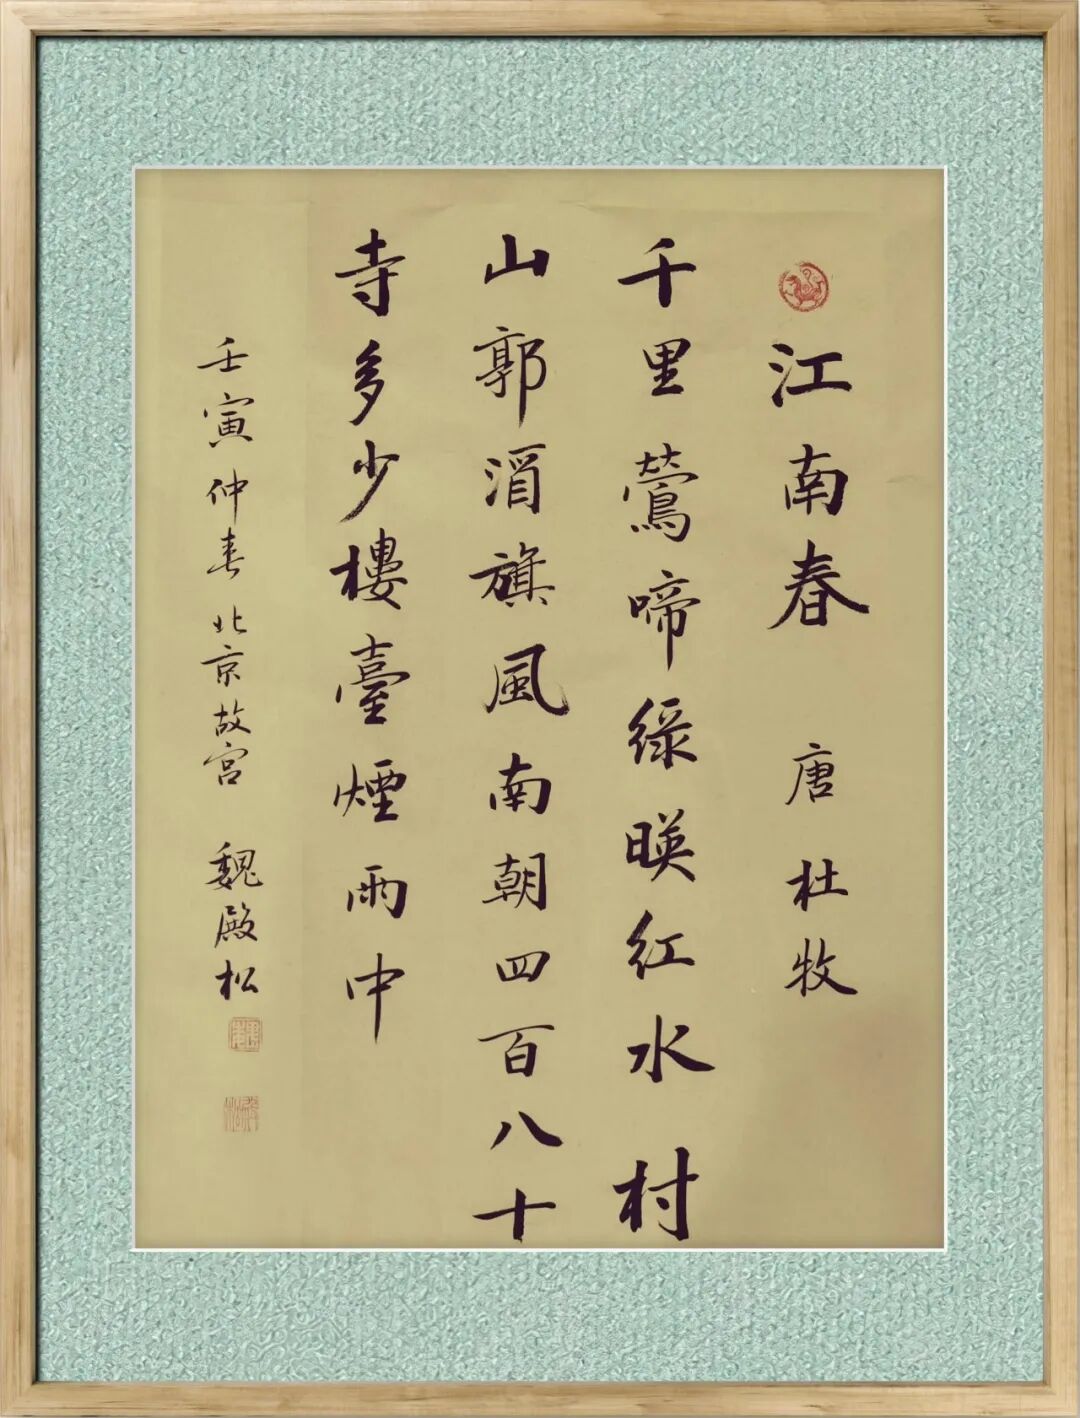 江南春 唐 杜牧
千里鶯啼绿暎红水村
山郭酒旗風南朝四百八十
寺多少樓臺煙雨中
壬寅仲春 北京故宫 魏殿松